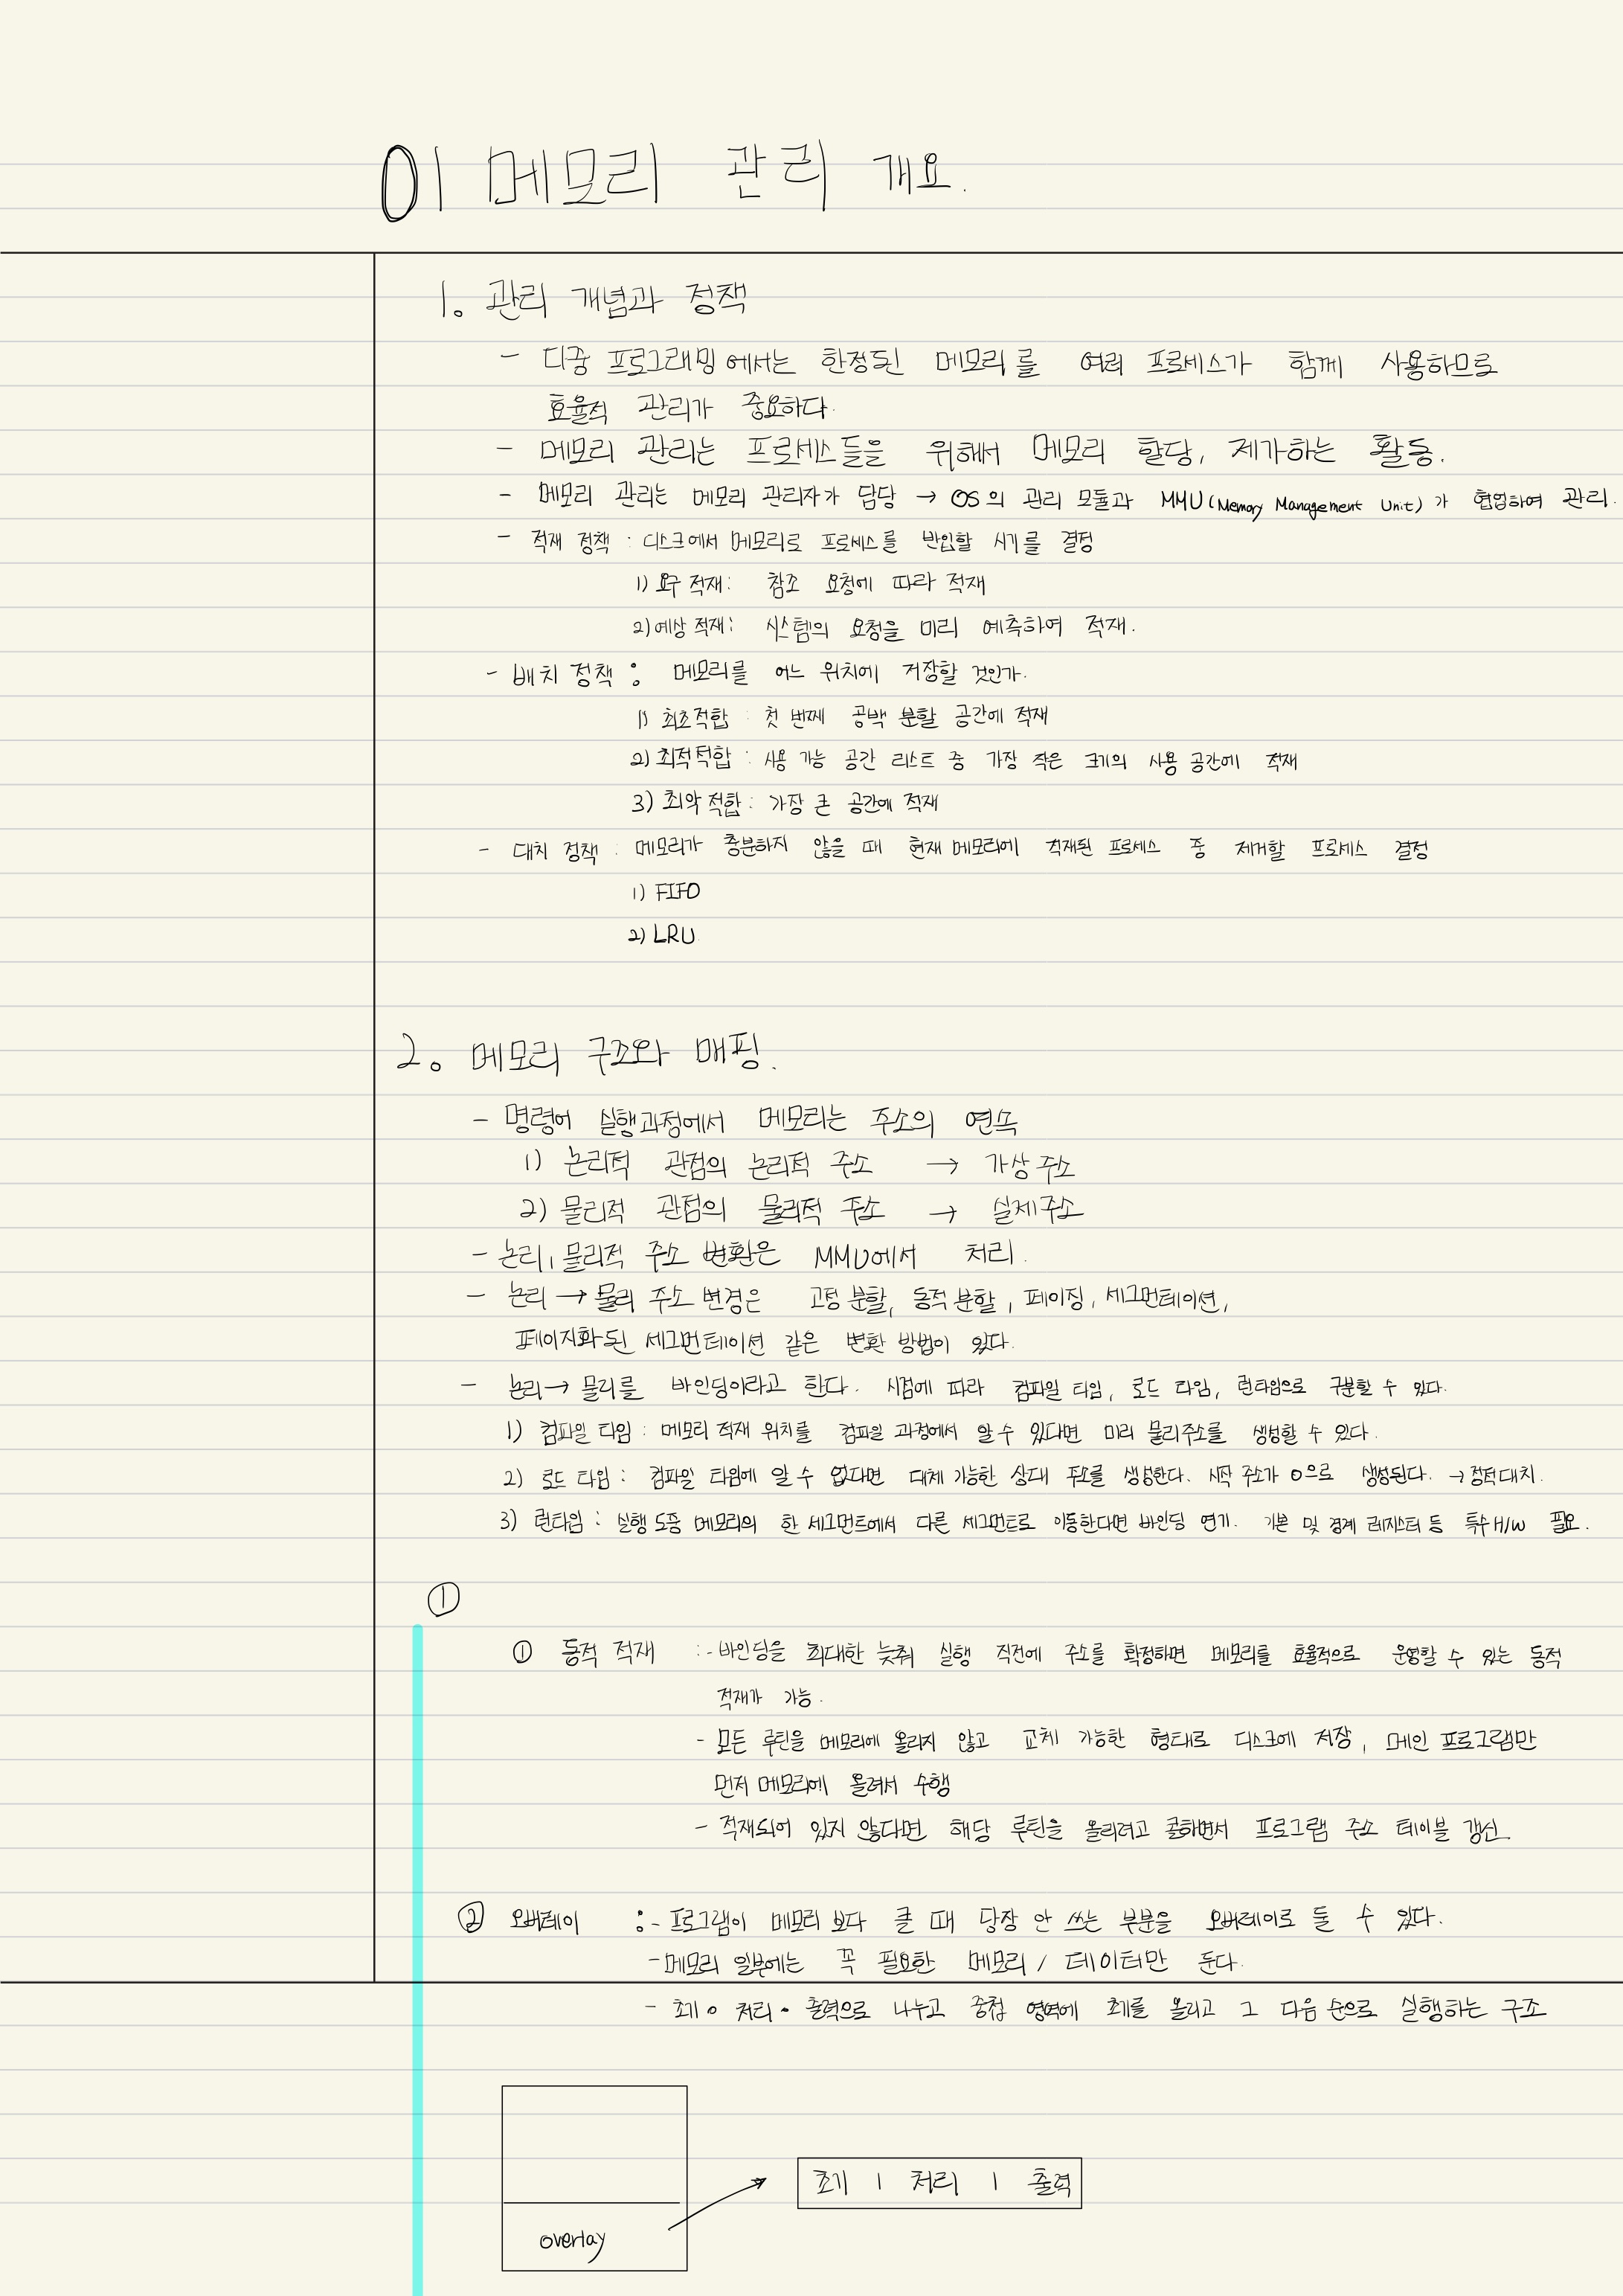 01 메모리 관리 개요.
1. 관리 개념과 정책
- 다중 프로그래밍에서는 한정된 메모리를 여러 프로세스가 함께 사용하므로
효율적 관리가 중요하다.
- 메모리 관리는 프로세스들을 위해서 메모리 할당, 제거하는 활동.
- 메모리 관리는 메모리 관리자가 담당 → OS의 관리 모듈과 MMU(Memory Management Unit)가 협업하여 관리.
- 적재 정책 : 디스크에서 메모리로 프로세스를 반입할 시기를 결정
1) 요구 적재: 참조 요청에 따라 적재
2) 예상 적재: 시스템의 요청을 미리 예측하여 적재.
- 배치 정책 : 메모리를 어느 위치에 저장할 것인가.
1) 최초적합 : 첫 번째 공백 분할 공간에 적재
2) 최적적합 : 사용 가능 공간 리스트 중 가장 작은 크기의 사용 공간에 적재
3) 최악적합 : 가장 큰 공간에 적재
- 대치 정책 : 메모리가 충분하지 않을 때 현재 메모리에 적재된 프로세스 중 제거할 프로세스 결정
1) FIFO
2) LRU
2. 메모리 구조와 매핑.
- 명령어 실행과정에서 메모리는 주소의 연속
1) 논리적 관점의 논리적 주소 → 가상주소
2) 물리적 관점의 물리적 주소 → 실제주소
- 논리, 물리적 주소 변환은 MMU에서 처리.
- 논리 → 물리 주소 변경은 고정 분할, 동적분할, 페이징, 세그먼테이션,
페이지화된 세그먼테이션 같은 변환 방법이 있다.
- 논리 → 물리를 바인딩이라고 한다. 시점에 따라 컴파일 타임, 로드 타임, 런타임으로 구분할 수 있다.
1) 컴파일 타임 : 메모리 적재 위치를 컴파일 과정에서 알 수 있다면 미리 물리주소를 생성할 수 있다.
2) 로드 타임 : 컴파일 타임에 알 수 없다면 대체 가능한 상대 주소를 생성한다. 시작 주소가 0으로 생성된다. → 정적대치.
3) 런타임 : 실행 도중 메모리의 한 세그먼트에서 다른 세그먼트로 이동한다면 바인딩 연기. 기본 및 경계 레지스터 등 특수 H/W 필요.
①
① 동적 적재 : - 바인딩을 최대한 늦춰 실행 직전에 주소를 확정하면 메모리를 효율적으로 운영할 수 있는 동적
적재가 가능.
- 모든 루틴을 메모리에 올리지 않고 교체 가능한 형태로 디스크에 저장, 메인 프로그램만
먼저 메모리에 올려서 수행
- 적재되어 있지 않다면 해당 루틴을 올리려고 콜하면서 프로그램 주소 테이블 갱신.
② 오버레이 : - 프로그램이 메모리 보다 클 때 당장 안 쓰는 부분을 오버레이로 둘 수 있다.
- 메모리 일부에는 꼭 필요한 메모리 / 데이터만 둔다.
- 초기 • 처리 • 출력으로 나누고 중첩 영역에 초기를 올리고 그 다음 순으로 실행하는 구조
초기 | 처리 | 출력
overlay